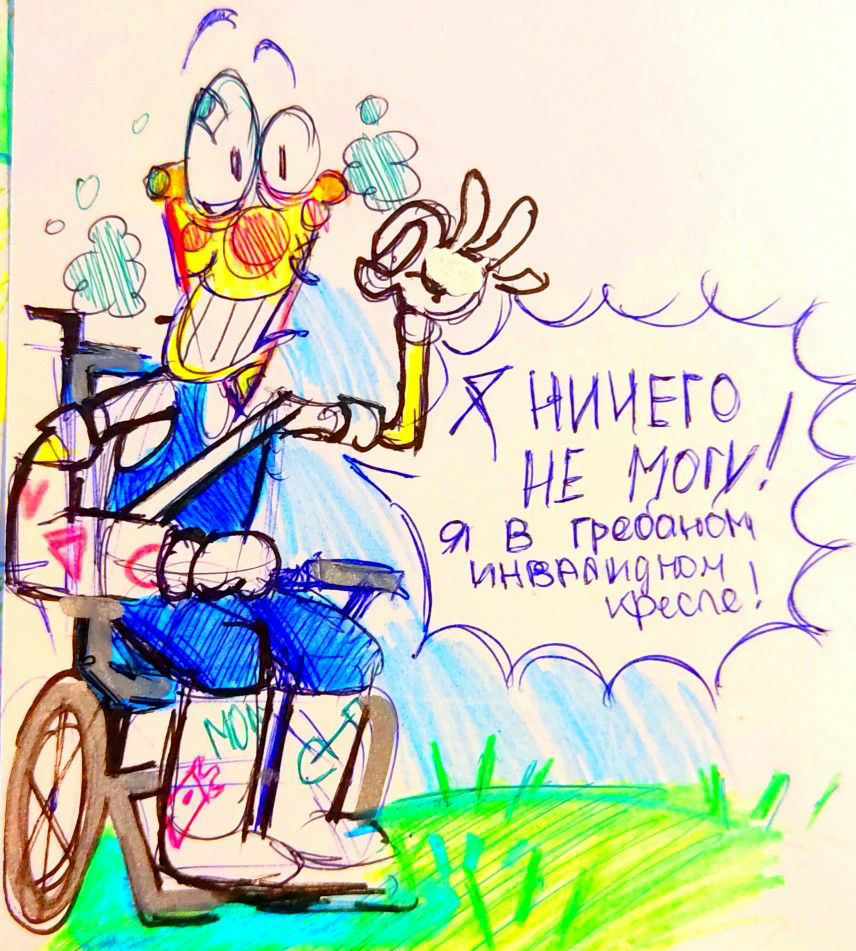 Я НИЧЕГО
НЕ МОГУ!
Я В Гребаном
ИНВАЛИДНОМ
кресле!